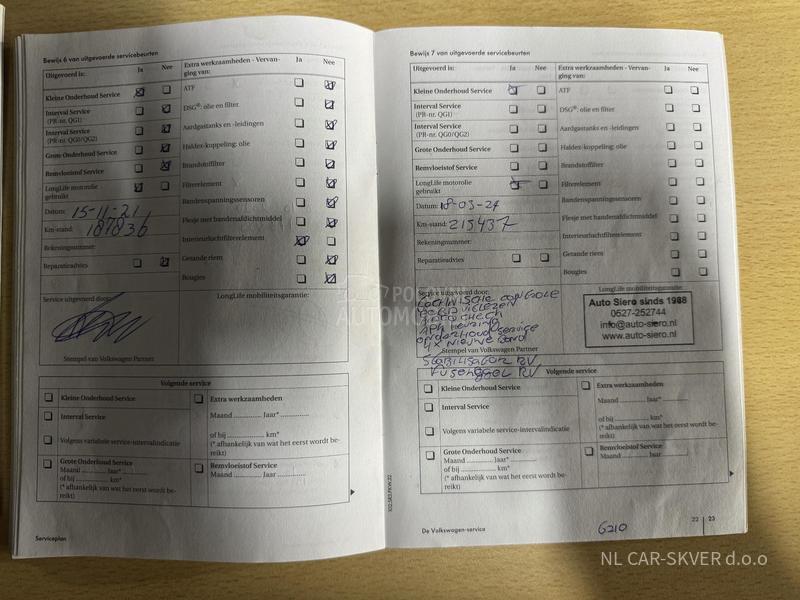 Bewijs 6 van uitgevoerde servicebeurten
Uitgevoerd is:
Ja
Nee
Extra werkzaamheden - Vervanging van:
Ja
Nee
Kleine Onderhoud Service
Interval Service
(PR-nr. QG1)
Interval Service
(PR-nr. QG0/QG2)
Grote Onderhoud Service
Remvloeistof Service
LongLife motorolie
gebruikt
Datum: 15-11-21
Km-stand: 187836
Rekeningnummer:
Reparatieadvies
ATF
DSG®: olie en filter
Aardgastanks en -leidingen
Haldex-koppeling: olie
Brandstoffilter
Filterelement
Bandenspanningssensoren
Flesje met bandenafdichtmiddel
Interieurluchtfilterelement
Getande riem
Bougies
Service uitgevoerd door:
LongLife mobiliteitsgarantie:
Stempel van Volkswagen Partner
Volgende service
Kleine Onderhoud Service
Interval Service
Volgens variabele service-intervalindicatie
Grote Onderhoud Service
Maand .......... Jaar*..........
of bij .......... km*
(* afhankelijk van wat het eerst wordt bereikt)
Extra werkzaamheden
Maand .......... Jaar*..........
of bij .......... km*
(* afhankelijk van wat het eerst wordt bereikt)
Remvloeistof Service
Maand .......... Jaar ..........
Serviceplan
Bewijs 7 van uitgevoerde servicebeurten
Uitgevoerd is:
Ja
Nee
Extra werkzaamheden - Vervanging van:
Ja
Nee
Kleine Onderhoud Service
Interval Service
(PR-nr. QG1)
Interval Service
(PR-nr. QG0/QG2)
Grote Onderhoud Service
Remvloeistof Service
LongLife motorolie
gebruikt
Datum: 18-03-24
Km-stand: 215437
Rekeningnummer:
Reparatieadvies
ATF
DSG®: olie en filter
Aardgastanks en -leidingen
Haldex-koppeling: olie
Brandstoffilter
Filterelement
Bandenspanningssensoren
Flesje met bandenafdichtmiddel
Interieurluchtfilterelement
Getande riem
Bougies
Service uitgevoerd door:
onderhoud service
4x nieuwe band
Stempel van Volkswagen Partner
Stabilisator RV
LongLife mobiliteitsgarantie:
Auto Siero sinds 1988
0527-252744
info@auto-siero.nl
www.auto-siero.nl
Volgende service
Kleine Onderhoud Service
Interval Service
Volgens variabele service-intervalindicatie
Grote Onderhoud Service
Maand .......... Jaar*..........
of bij .......... km*
(* afhankelijk van wat het eerst wordt bereikt)
Extra werkzaamheden
Maand .......... Jaar*..........
of bij .......... km*
(* afhankelijk van wat het eerst wordt bereikt)
Remvloeistof Service
Maand .......... Jaar ..........
De Volkswagen-service
6210
22 | 23
NL CAR-SKVER d.o.o